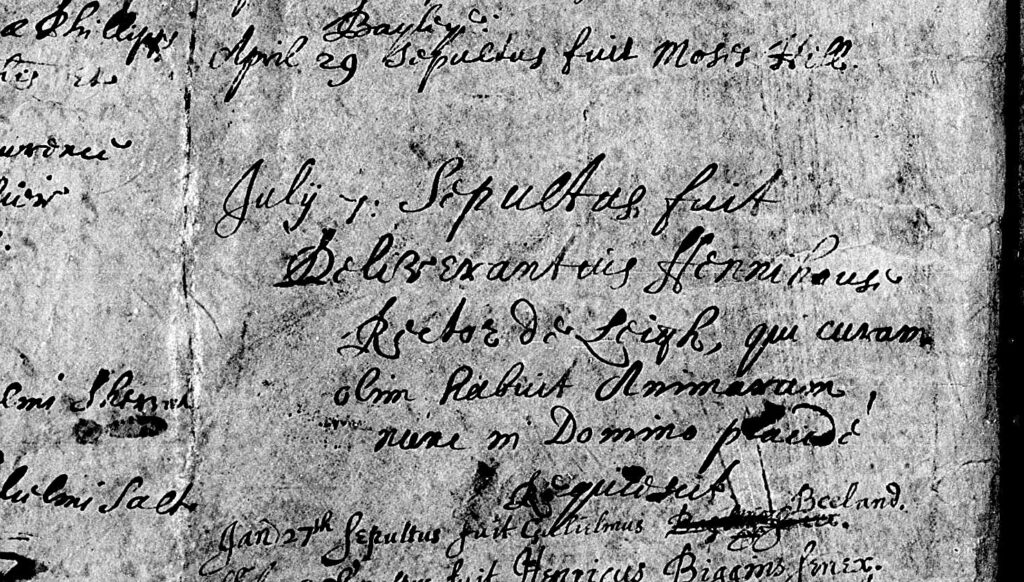 a Phillipps
Bayley
April 29 Sepultus fuit Moses Hill.
et
July 7. Sepultus fuit
Deliverantius Fennihouse
Rector de Leigh, qui curam
olim habuit Animarum,
nunc in Domino placidè
Requiescit
Salt
Jan 27th Sepultus fuit Gulielmus Beeland.
fuit Henricus Biggins senex.